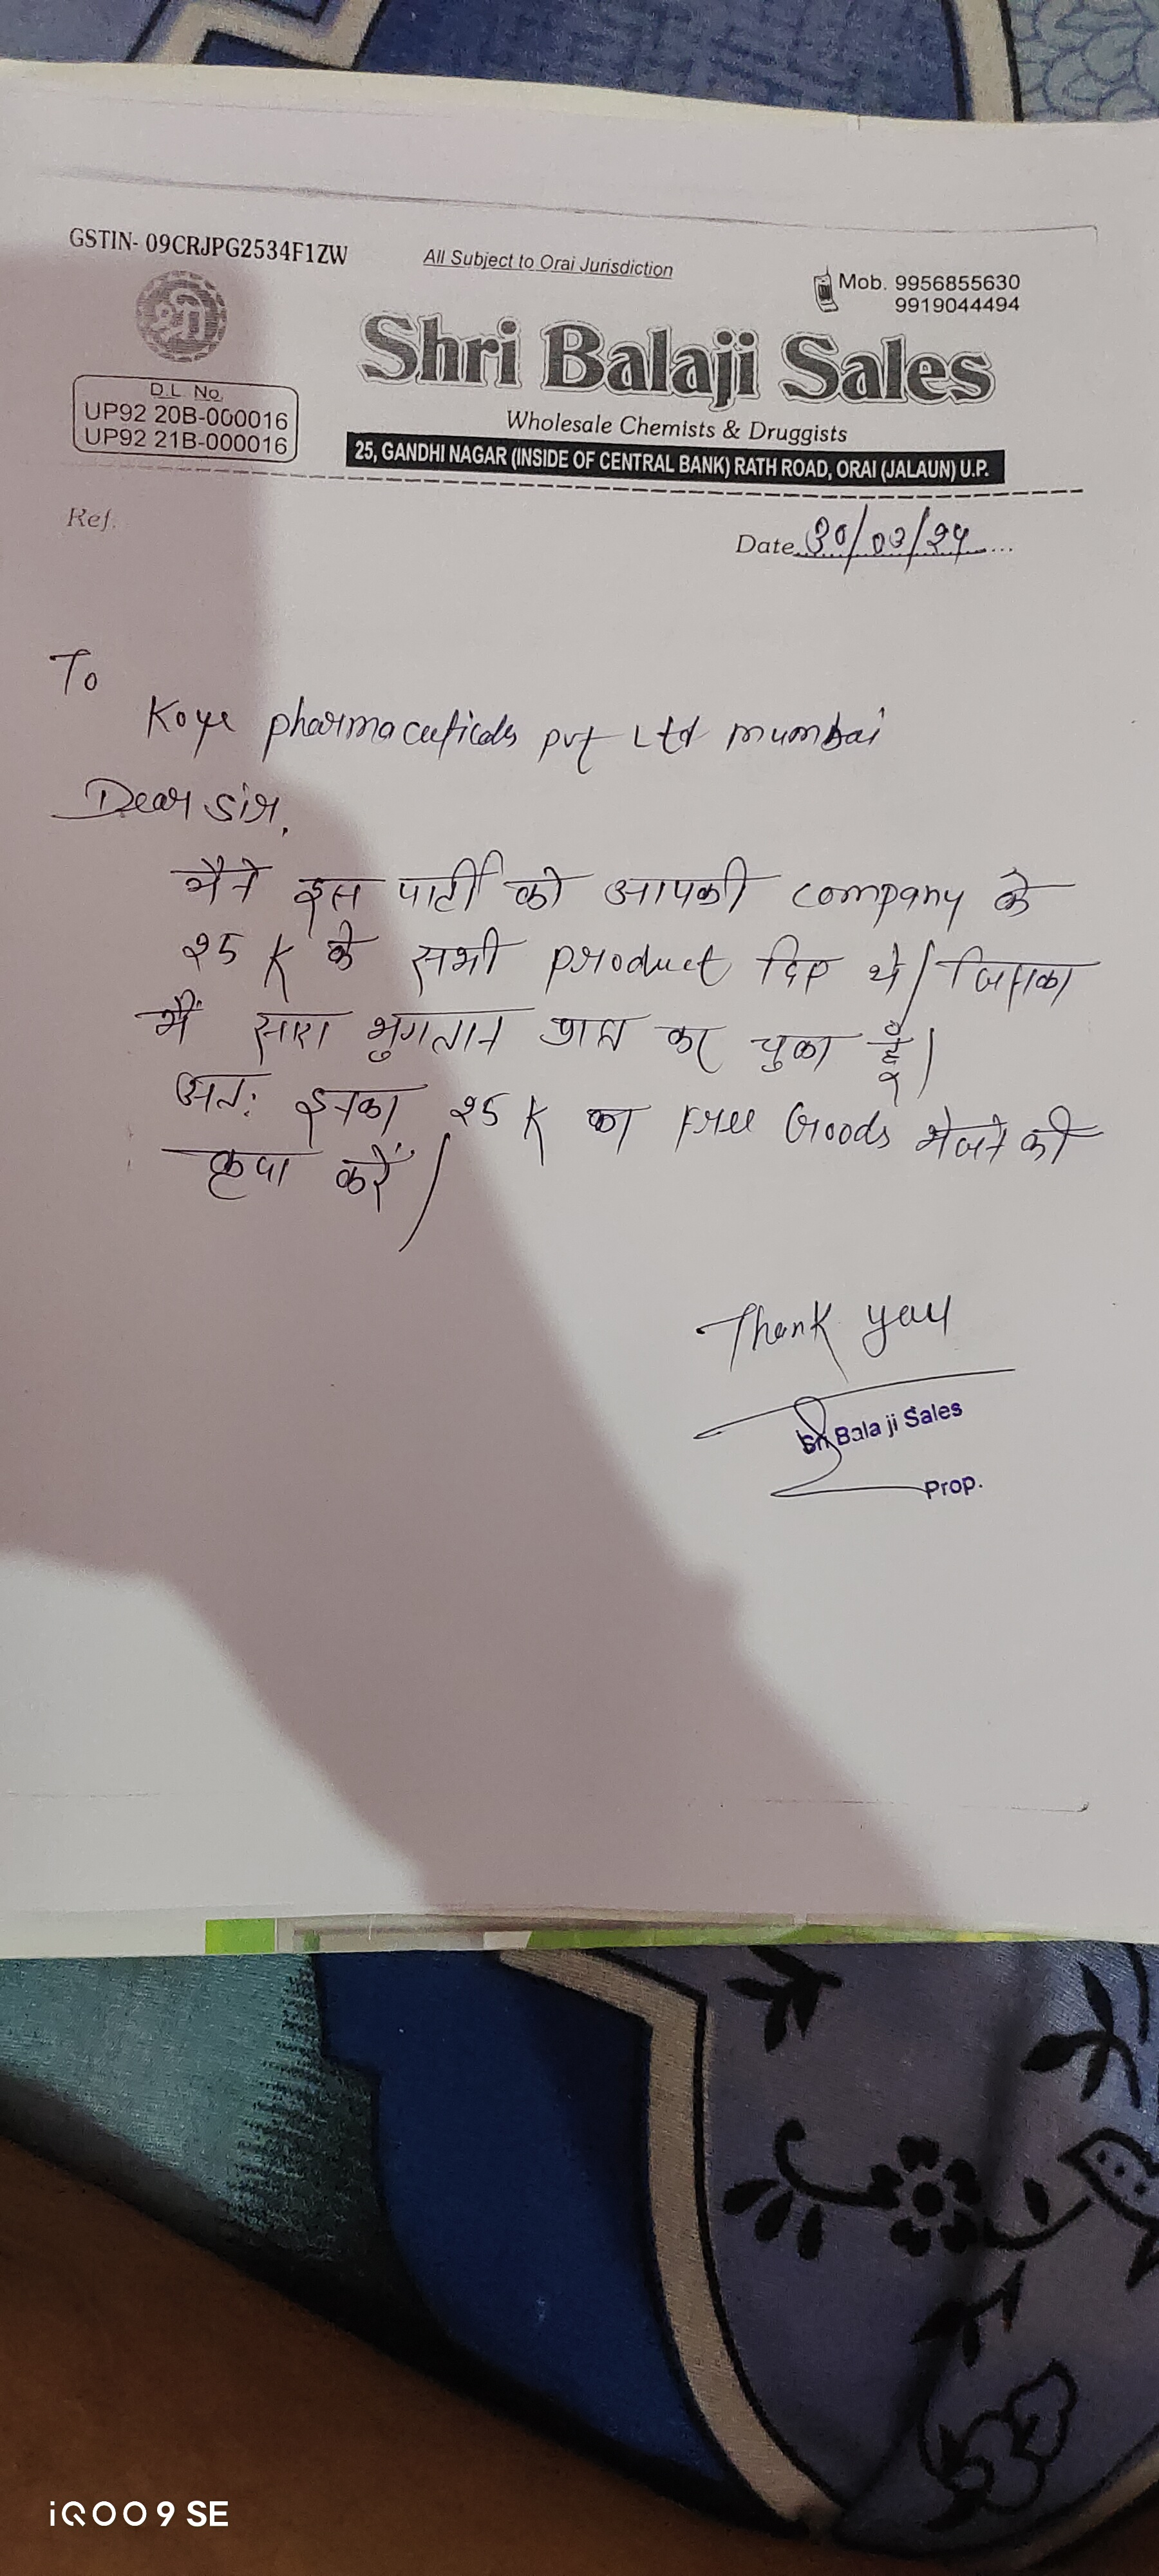 GSTIN- 09CRJPG2534F1ZW
All Subject to Orai Jurisdiction
Mob. 9956855630
9919044494
श्री
Shri Balaji Sales
D.L. No.
UP92 20B-000016
UP92 21B-000016
Wholesale Chemists & Druggists
25, GANDHI NAGAR (INSIDE OF CENTRAL BANK) RATH ROAD, ORAI (JALAUN) U.P.
Ref.
Date 30/03/24
To
Koye pharmaceuticals pvt Ltd mumbai
Dear Sir,
मैने इस पार्टी को आपकी company के
25 K के सभी product दिए थे। जिसका
मैं सारा भुगतान प्राप्त कर चुका हूँ।
अतः इनका 25 K का Free Goods भेजने की
कृपा करें।
Thank you
Sri Bala ji Sales
Prop.
iQOO 9 SE